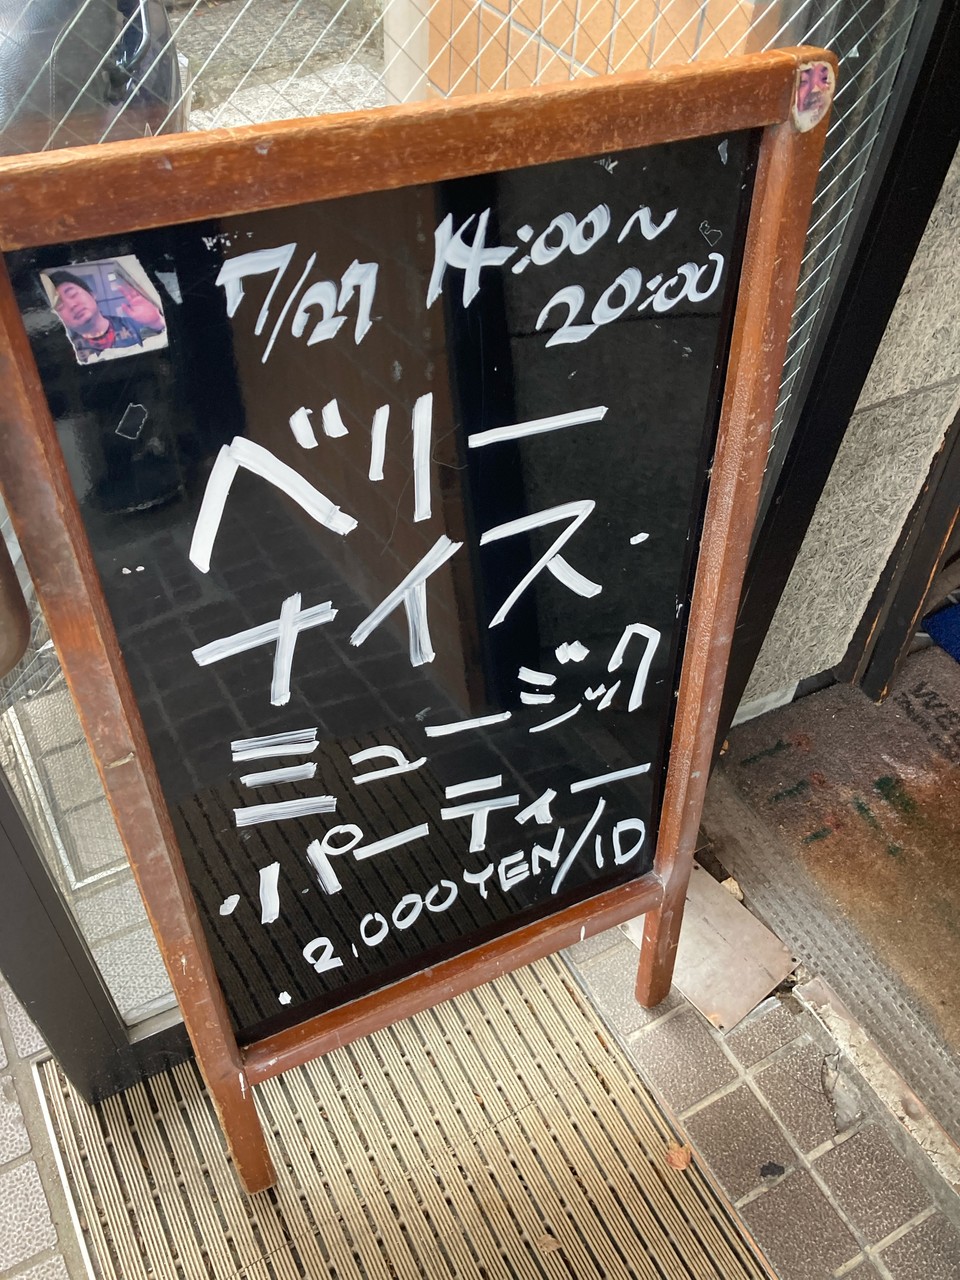 7/27 14:00~
20:00
ベリー
ナイス
ミュージック
パーティー
2,000YEN/1D